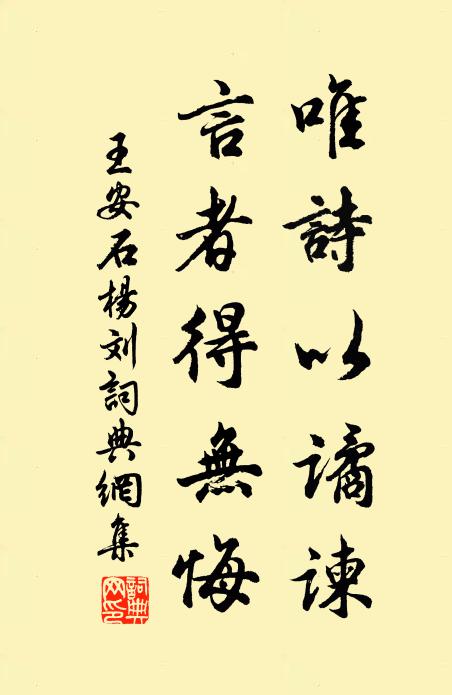 唯詩以譎諫
言者得無悔
王安石楊刘詞典網集
詞典網印